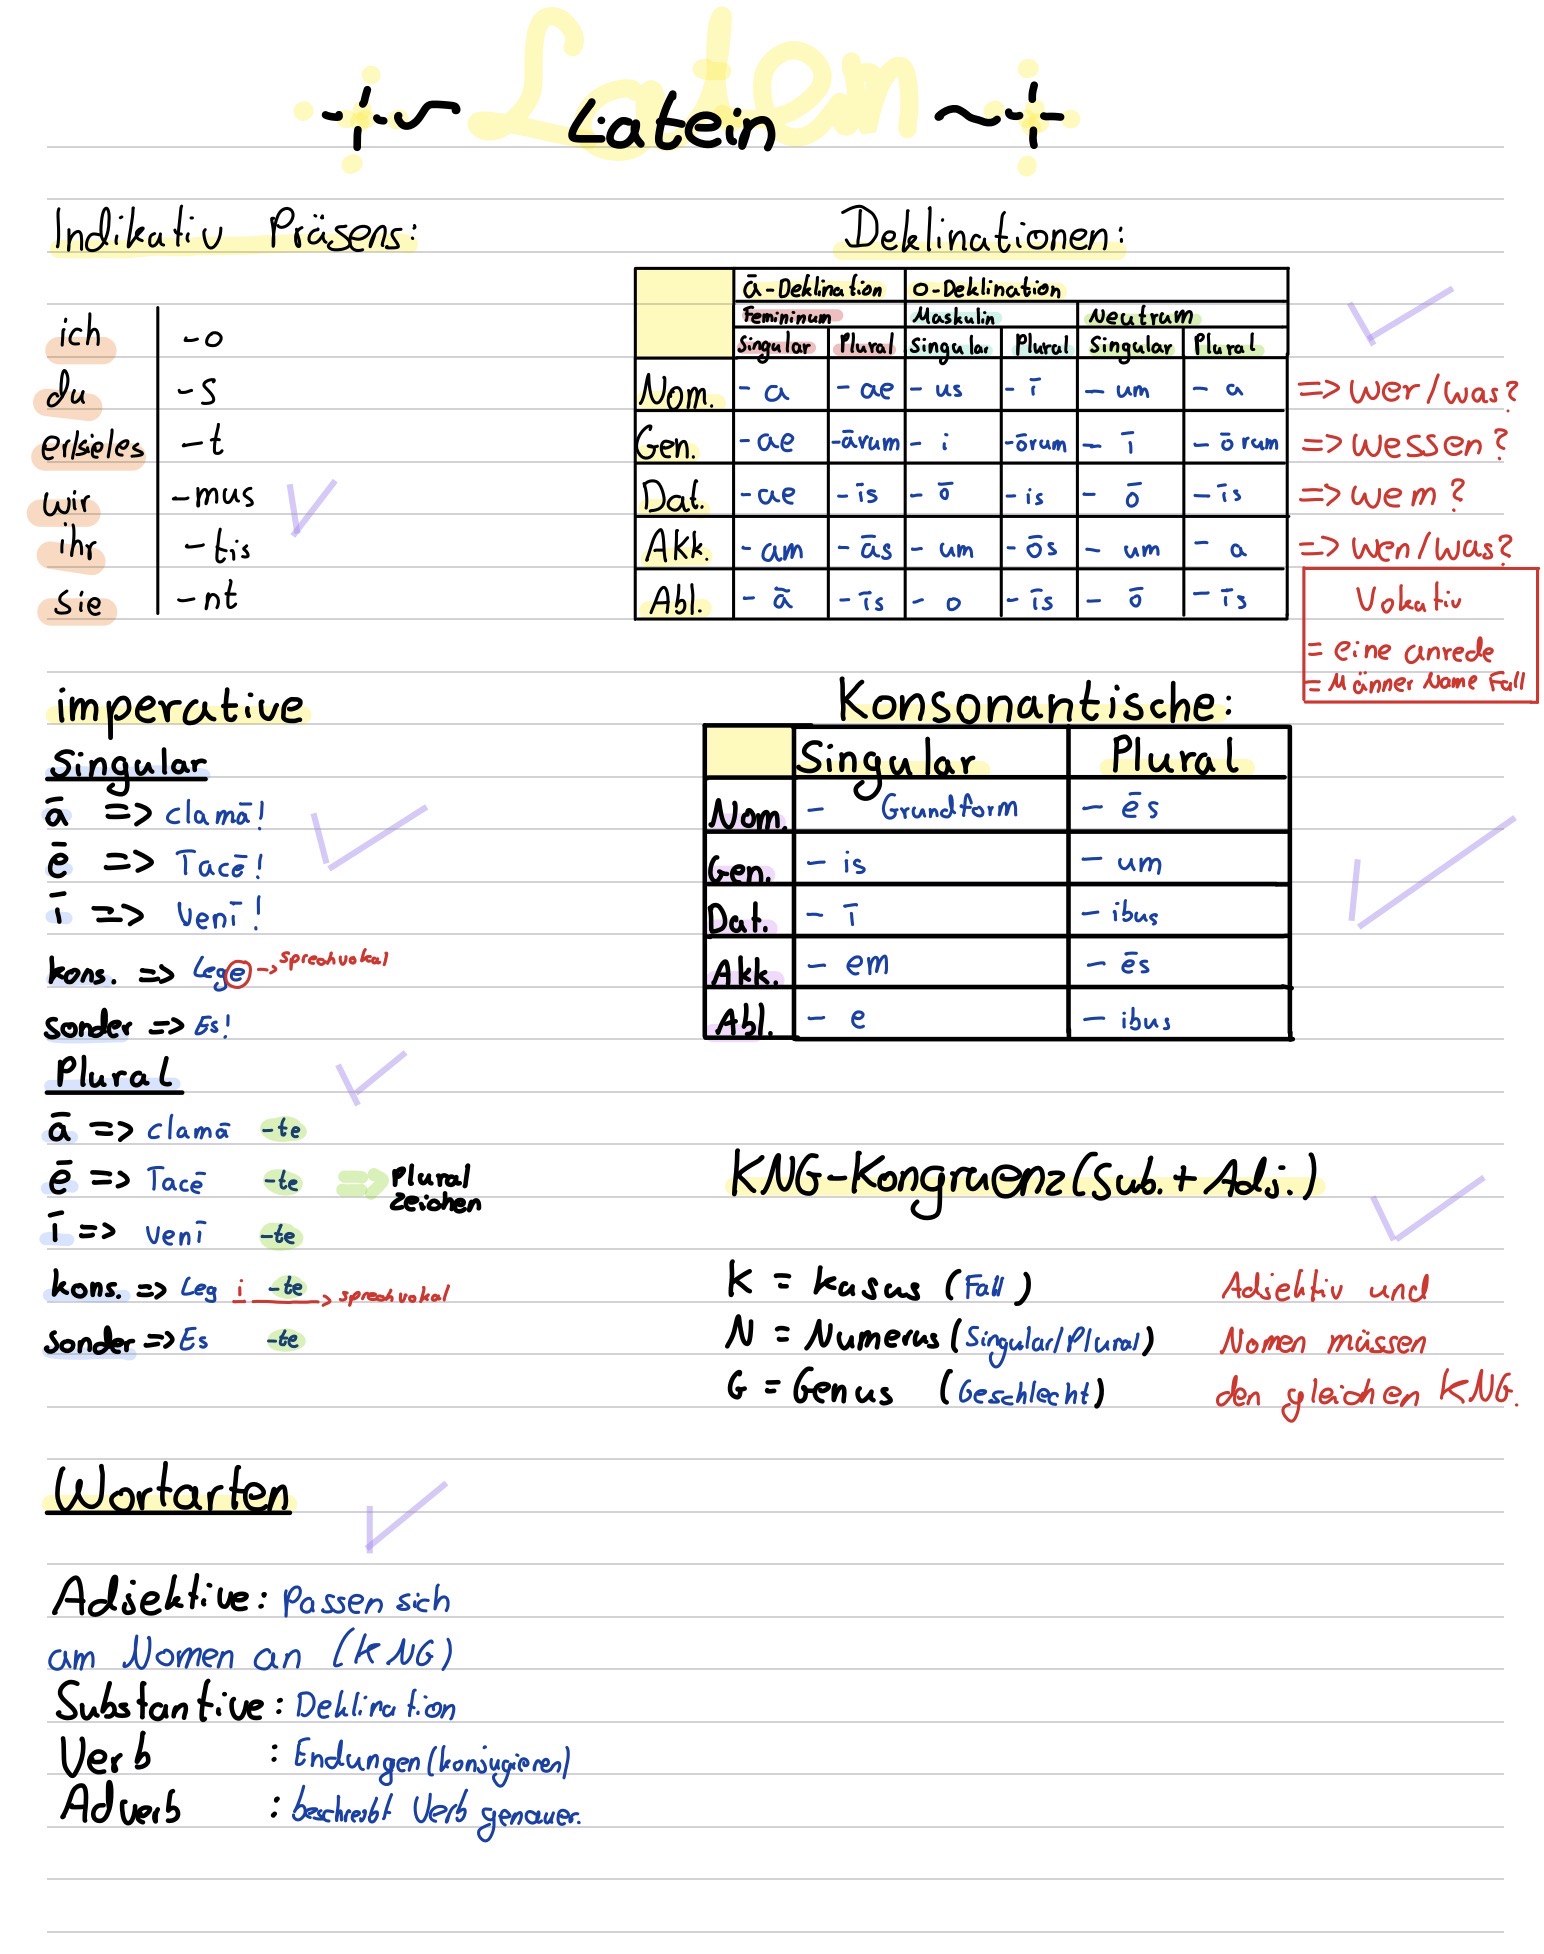 Latein
Latein
Indikativ Präsens:
ich -o
du -s
er/sie/es -t
wir -mus
ihr -tis
sie -nt
Deklinationen:
ā-Deklination o-Deklination
Femininum Maskulin Neutrum
Singular Plural Singular Plural Singular Plural
Nom. -a -ae -us -ī -um -a => wer/was?
Gen. -ae -ārum -i -ōrum -ī -ōrum => wessen?
Dat. -ae -īs -ō -is -ō -īs => wem?
Akk. -am -ās -um -ōs -um -a => wen/was?
Abl. -ā -īs -o -īs -ō -īs
Vokativ
= eine anrede
= Männer Name Fall
imperative
Singular
ā => clamā!
ē => Tacē!
ī => Venī!
kons. => Lege -> sprechvokal
sonder => Es!
Plural
ā => clamā -te
ē => Tacē -te => Plural
zeichen
ī => venī -te
kons. => Leg i -te -> sprechvokal
sonder => Es -te
Konsonantische:
Singular Plural
Nom. - Grundform -ēs
Gen. -is -um
Dat. -ī -ibus
Akk. -em -ēs
Abl. -e -ibus
KNG-Kongruenz (Sub. + Adj.)
K = Kasus (Fall) Adjektiv und
N = Numerus (Singular/Plural) Nomen müssen
G = Genus (Geschlecht) den gleichen KNG.
Wortarten
Adjektive: Passen sich
am Nomen an (KNG)
Substantive: Deklination
Verb : Endungen (konjugieren)
Adverb : beschreibt Verb genauer.